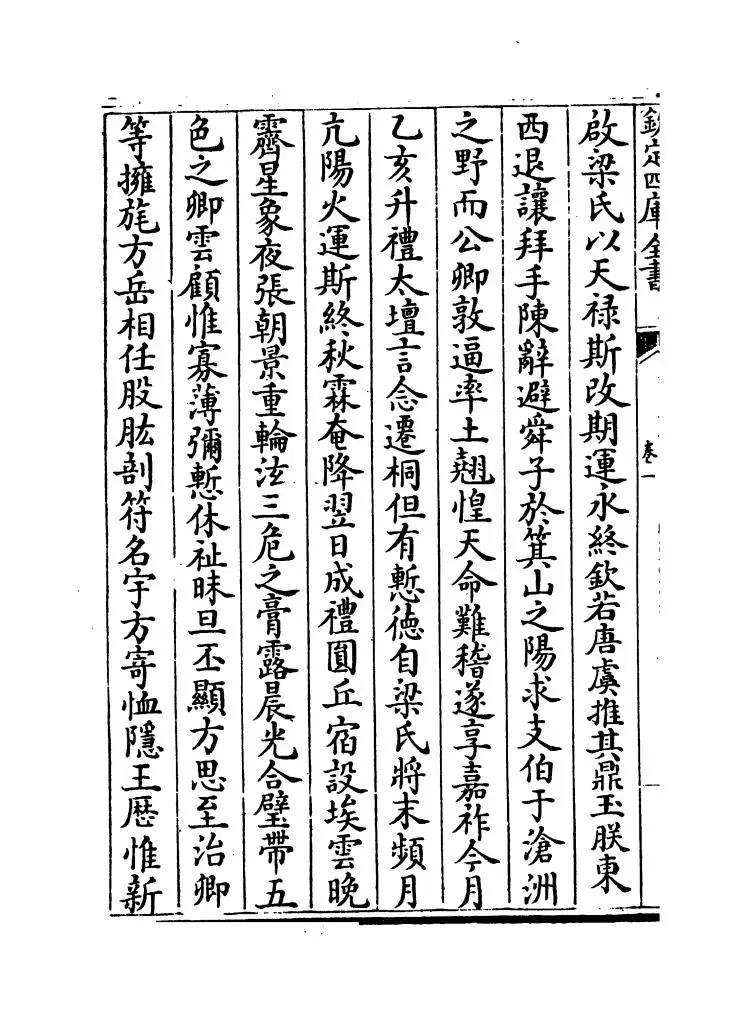 欽定四庫全書
卷一
啟梁氏以天禄斯改期運永終欽若唐虞推其鼎玉朕東
西退讓拜手陳辭避舜子於箕山之陽求支伯于滄洲
之野而公卿敦逼率土翹惶天命難稽遂享嘉祚今月
乙亥升禮太壇言念遷桐但有慙徳自梁氏將末頻月
亢陽火運斯終秋霖奄降翌日成禮圓丘宿設埃雲晚
霽星象夜張朝景重輪泫三危之膏露晨光合璧帶五
色之卿雲顧惟寡薄彌慙休祉昧旦丕顯方思至治卿
等擁旄方岳相任股肱剖符名宇方寄恤隱王厯惟新